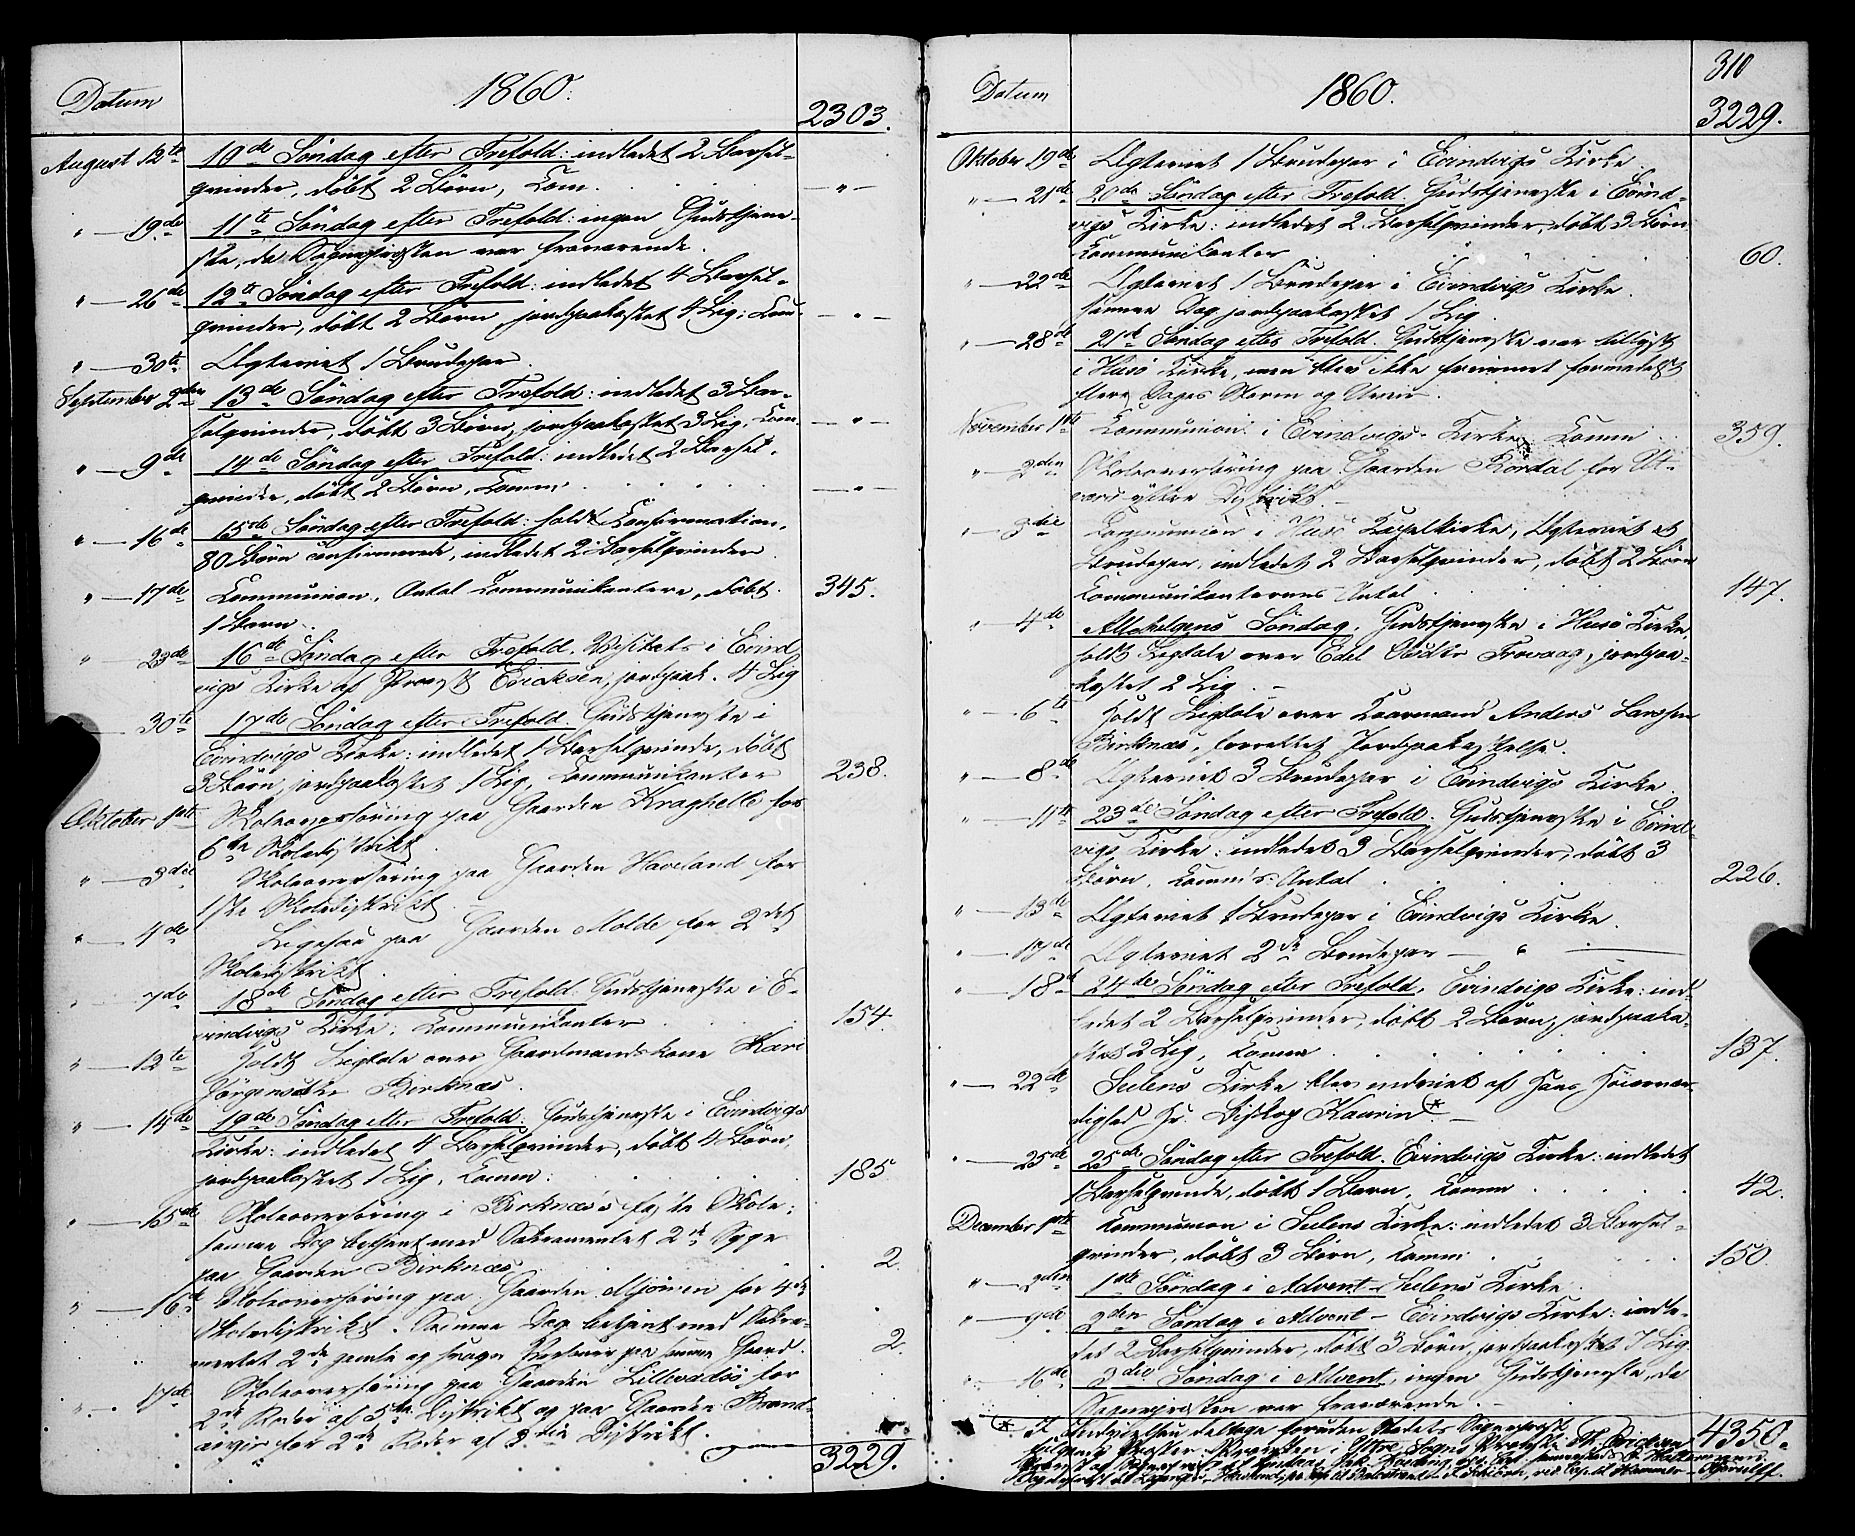 Datum 1860. 2303.
August 12te 10de Søndag efter Trefold: indledet 2 Barsel-
qvinder, døbt 2 Børn, Com. — " —
" — 19de 11te Søndag efter Trefold: ingen Gudstjene-
ste, da Sognepræsten var fraværende.
" — 26de 12te Søndag efter Trefold: indledet 4 Barsel-
qvinder, døbt 2 Børn, jordpaakastet 4 Lig; Com — " —
" — 30te Ægteviet 1 Brudepar.
September 2den 13de Søndag efter Trefold: indledet 3 Bar-
selqvinder, døbt 3 Børn, jordpaakastet 3 Lig; Com. — " —
" — 9de 14de Søndag efter Trefold: indledet 2 Barsel-
qvinder, døbt 2 Børn, Comm. — " —
" — 16de 15de Søndag efter Trefold: holdt Confirmation,
80 Børn confirmerede, indledet 2 Barselqvinder.
" — 17de Communion, Antal Communikantere, døbt 345.
1 Barn.
" — 23de 16de Søndag efter Trefold. Visitats i Evind-
vigs Kirke af Provst Ericksen, jordpaak. 4 Lig
30te 17de Søndag efter Trefold. Gudstjeneste i
Evindvigs Kirke: indledet 1 Barselqvinde, døbt
3 Børn, jordpaakastet 1 Lig, Communikanter 238.
Oktober 1ste Skoleoverhøring paa Gaarden Kraghelle for
6te Skoledistrikt.
" — 3die Skoleoverhøring paa Gaarden Haveland for
1ste Skoledistrikt.
" — 4de Ligesaa paa Gaarden Molde for 2det
Skoledistrikt.
7de 18de Søndag efter Trefold. Gudstjeneste i E-
vindvigs Kirke, Communikanter 154.
" — 12te Holdt Ligtale over Gaardmandskone Kari
Jørgensdtr Birknæs.
" — 14de 19de Søndag efter Trefold. Gudstjeneste i Evindvigs
Kirke: indledet 4 Barselqvinder, døbt 4 Børn,
jordpaakastet 1 Lig, Comm: 185.
" — 15de Skoleoverhøring i Birknæs's faste Skole;
samme Dag betjent med Sakramentet 2de Syge
paa Gaarden Birknæs 2.
" — 16de Skoleoverhøring paa Gaarden Mjømen for 4de
Skoledistrikt. Samme Dag betjent med Sakra-
mentet 2de gamle og svage Personer paa samme Gaard. 2.
17de Skoleoverhøring paa Gaarden Lillevadsø, for
2de Roder af 5te Distrikt og paa Gaarden Brand-
anvir for 2de Roder af 3die Distrikt.
3229.
310
Datum 1860. 3229.
Oktober 19de Ægteviet 1 Brudepar i Evindvigs Kirke
" — 21de 20de Søndag efter Trefold. Gudstjeneste i Evind-
vigs Kirke: indledet 2 Barselqvinder, døbt 3 Børn
Communikanter 60.
" — 22de Ægteviet 1 Brudepar i Evindvigs Kirke.
samme Dag jordpaakastet 1 Lig.
" — 28de 21de Søndag efter Trefold. Gudstjeneste var tillyst
i Husø Kirke, men blev ikke fremmet formedelst
flere Dages Storm og Uveir.
November 1ste Communion i Evindvigs Kirke Comm 359.
" — 2den Skoleoverhøring paa Gaarden Kordal for Ut-
værs ydre Distrikt.
" — 3die Communion i Husø Kapelkirke, Ægteviet et
Brudepar, indledet 2 Barselqvinder, døbt 2 Børn
Communikanternes Antal 147.
" — 4de Allehelgens Søndag. Gudstjeneste i Husø Kirke
holdt Ligtale over Edel Trovaag, jordpaa-
kastet 2 Lig.
" — 6te Holdt Ligtale over Kaarmand Anders Larsen
Birknæs, forrettet Jordpaakastelse.
" — 8de Ægteviet 3 Brudepar i Evindvigs Kirke.
" — 11te 23de Søndag efter Trefold. Gudstjeneste i Evind-
vigs Kirke: indledet 3 Barselqvinder, døbt 3
Børn, Comm's Antal 226.
" — 13de Ægteviet 1 Brudepar i Evindvigs Kirke.
" — 17de Ægteviet 2de Brudepar — " —
" — 18de 24de Søndag efter Trefold. Evindvigs Kirke: ind-
ledet 2 Barselqvinder, døbt 2 Børn, jordpaaka-
stet 2 Lig, Comm 137.
" — 22de Sulens Kirke blev indviet af Hans Høiærvær-
dighed Hr. Biskop Kaurin *. —
" — 25de 25de Søndag efter Trefold. Evindvigs Kirke: indledet
1 Barselqvinde, døbt 1 Barn, Comm 42.
December 1ste Communion i Sulens Kirke: indledet 3 Barsel-
qvinder, døbt 3 Børn, Comm: 150.
" — 2den 1ste Søndag i Advent — Sulens Kirke.
" — 9de 2den Søndag i Advent — Evindvigs Kirke: indle-
det 2 Barselqvinder, døbt 3 Børn, jordpaakastet 7 Lig.
16de 3die Søndag i Advent, ingen Gudstjeneste, da
Sognepræsten var fraværende. —
* I Indvielsen deltoge foruden Stedets Sognepræst 4350.
følgende Præster: i Ytre Sogns Provsti Th. Erichsen